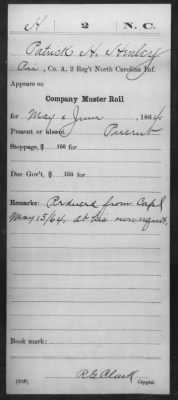 H 2 N.C.
Patrick H. Henley
Pvt, Co. A, 2 Reg't North Carolina Inf.
Appears on
Company Muster Roll
for May & June, 1864.
Present or absent, Present
Stoppage, $ 100 for
Due Gov't, $ 100 for
Remarks: Reduced from Corpl
May 15/64, at his own request,
Book mark:
R G Clark
Copyist.